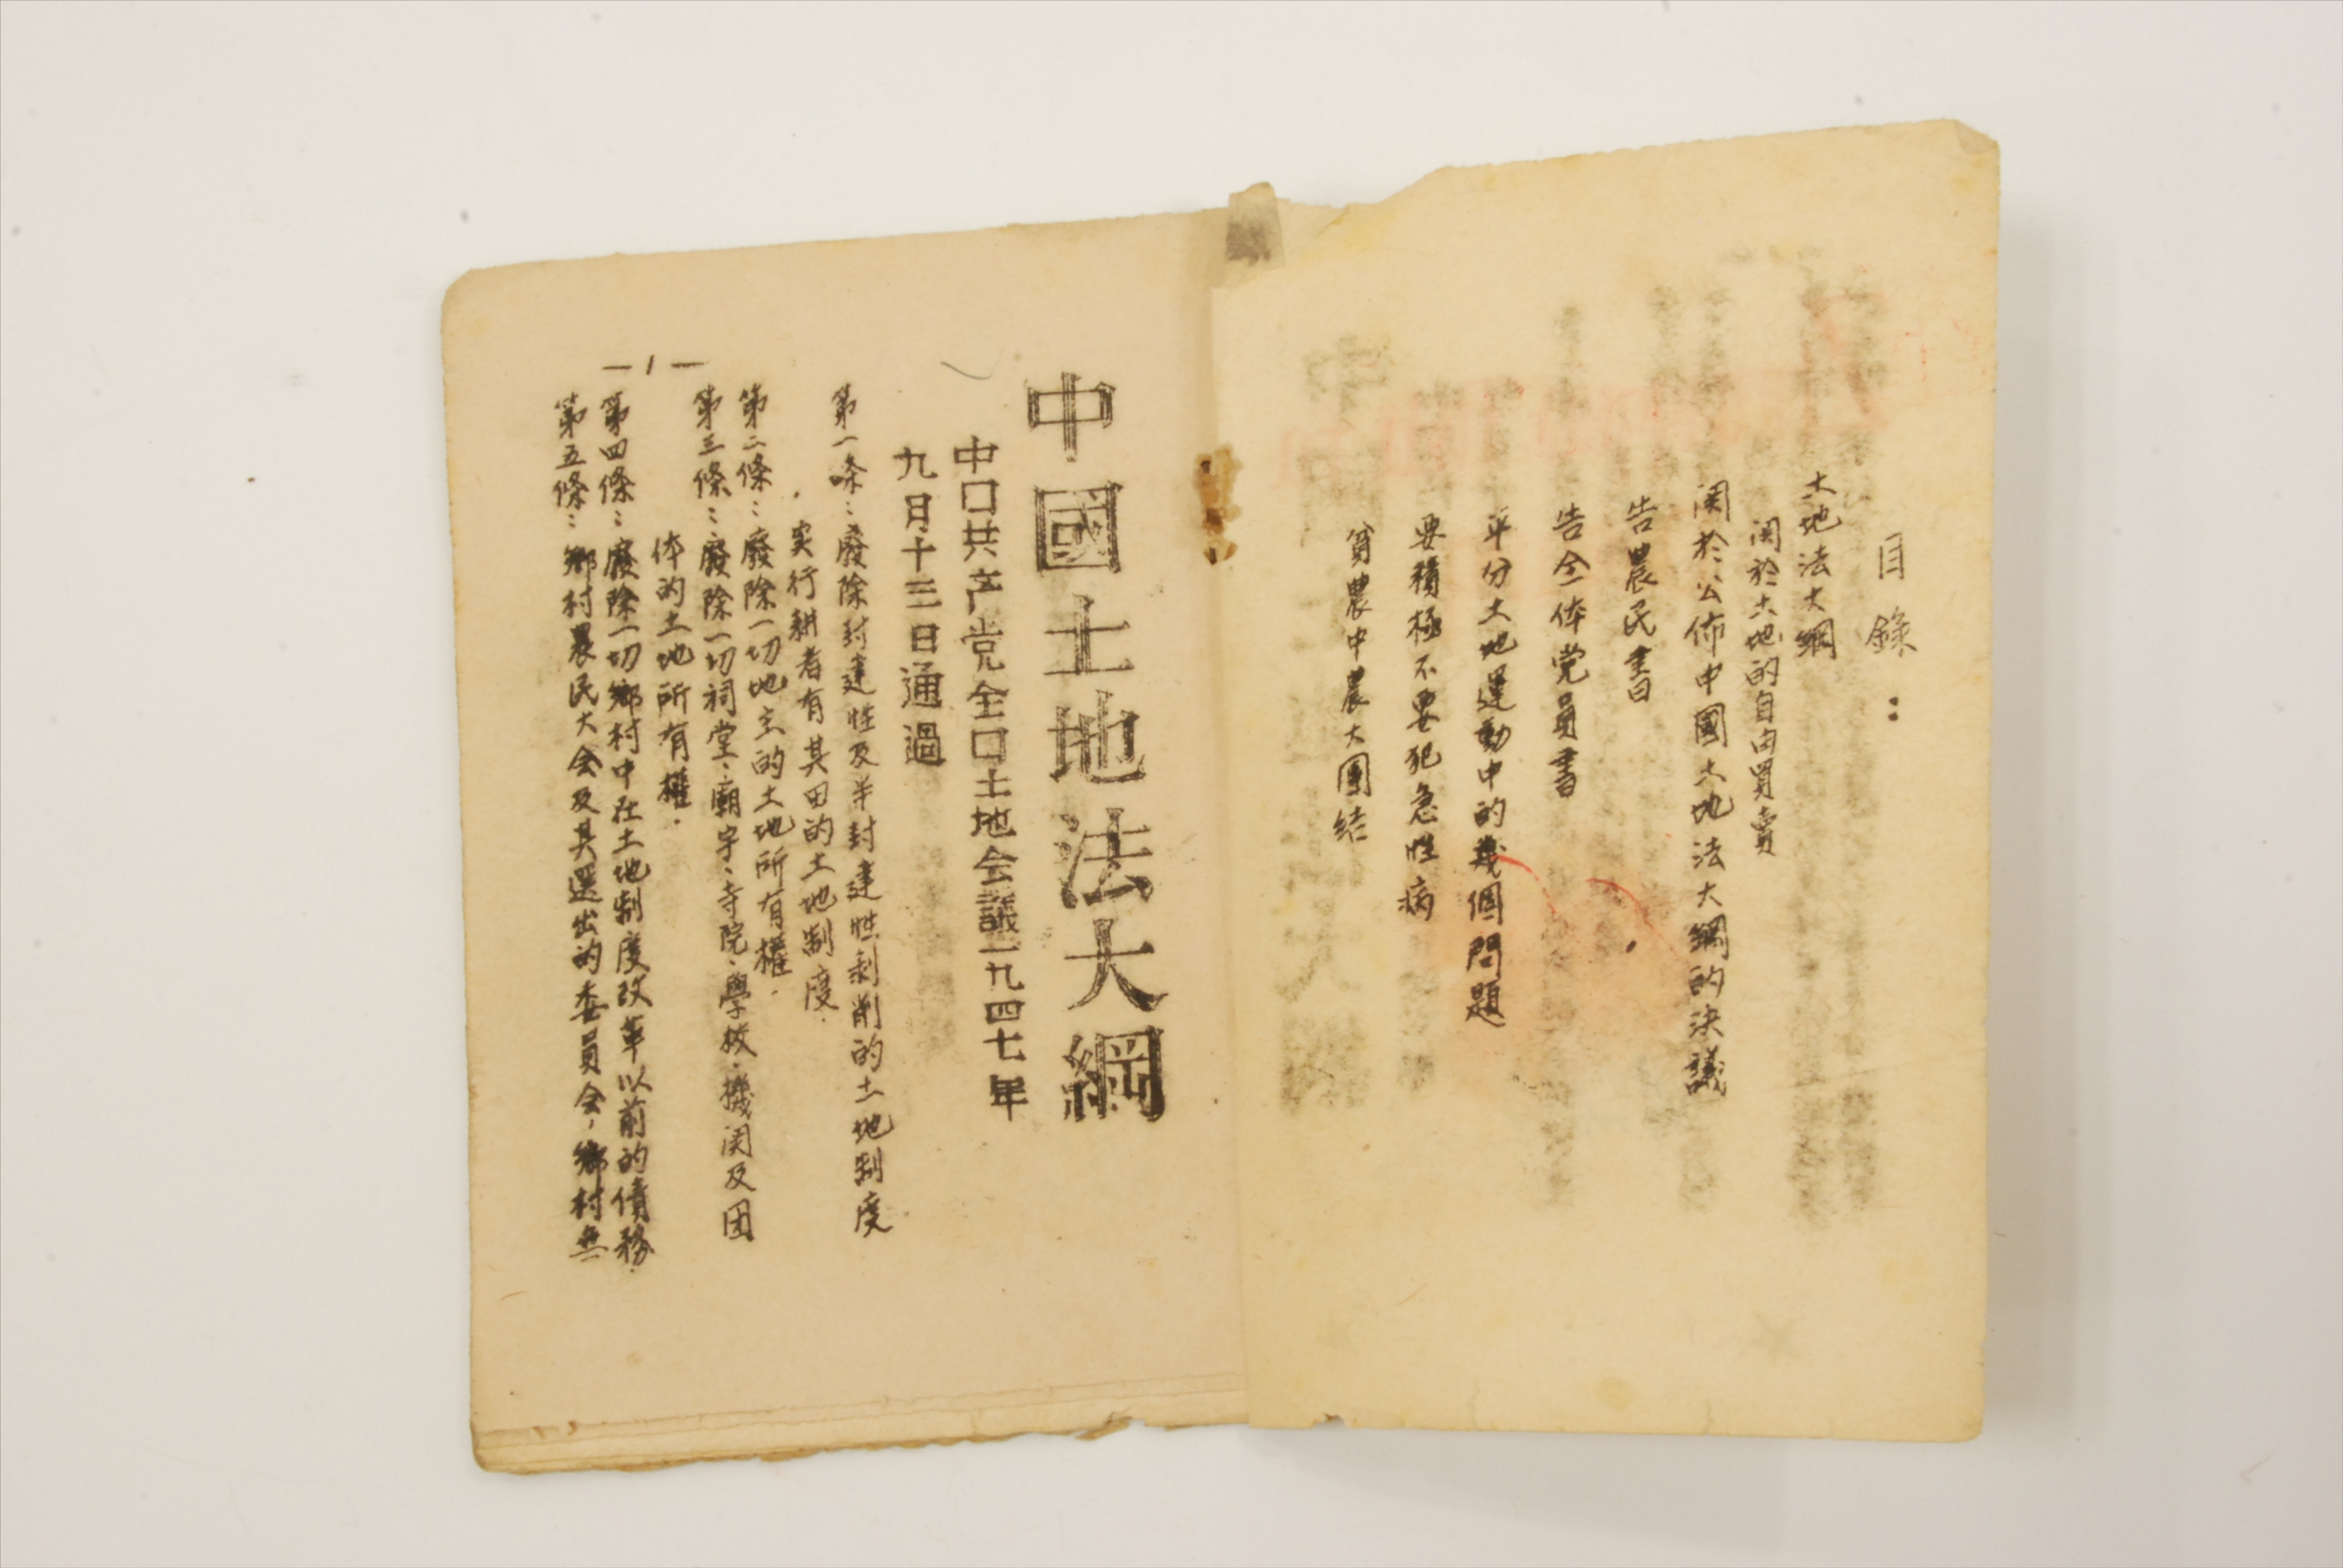 目錄：
土地法大綱
関於土地的自由買賣
関於公佈中國土地法大綱的決議
告農民書
告全体党員書
平分土地運動中的幾個問題
要積極不要犯急性病
貧農中農大團結
中國土地法大綱
中口共产党全口土地会議一九四七年
九月十三日通過
第一条：廢除封建性及半封建性剥削的土地制度
，实行耕者有其田的土地制度.
第二條：廢除一切地主的土地所有權.
第三條：廢除一切祠堂、廟宇、寺院、學校、機関及团
体的土地所有權.
第四條：廢除一切鄉村中在土地制度改革以前的債務.
第五條：鄉村農民大会及其選出的委員会，鄉村無
—1—